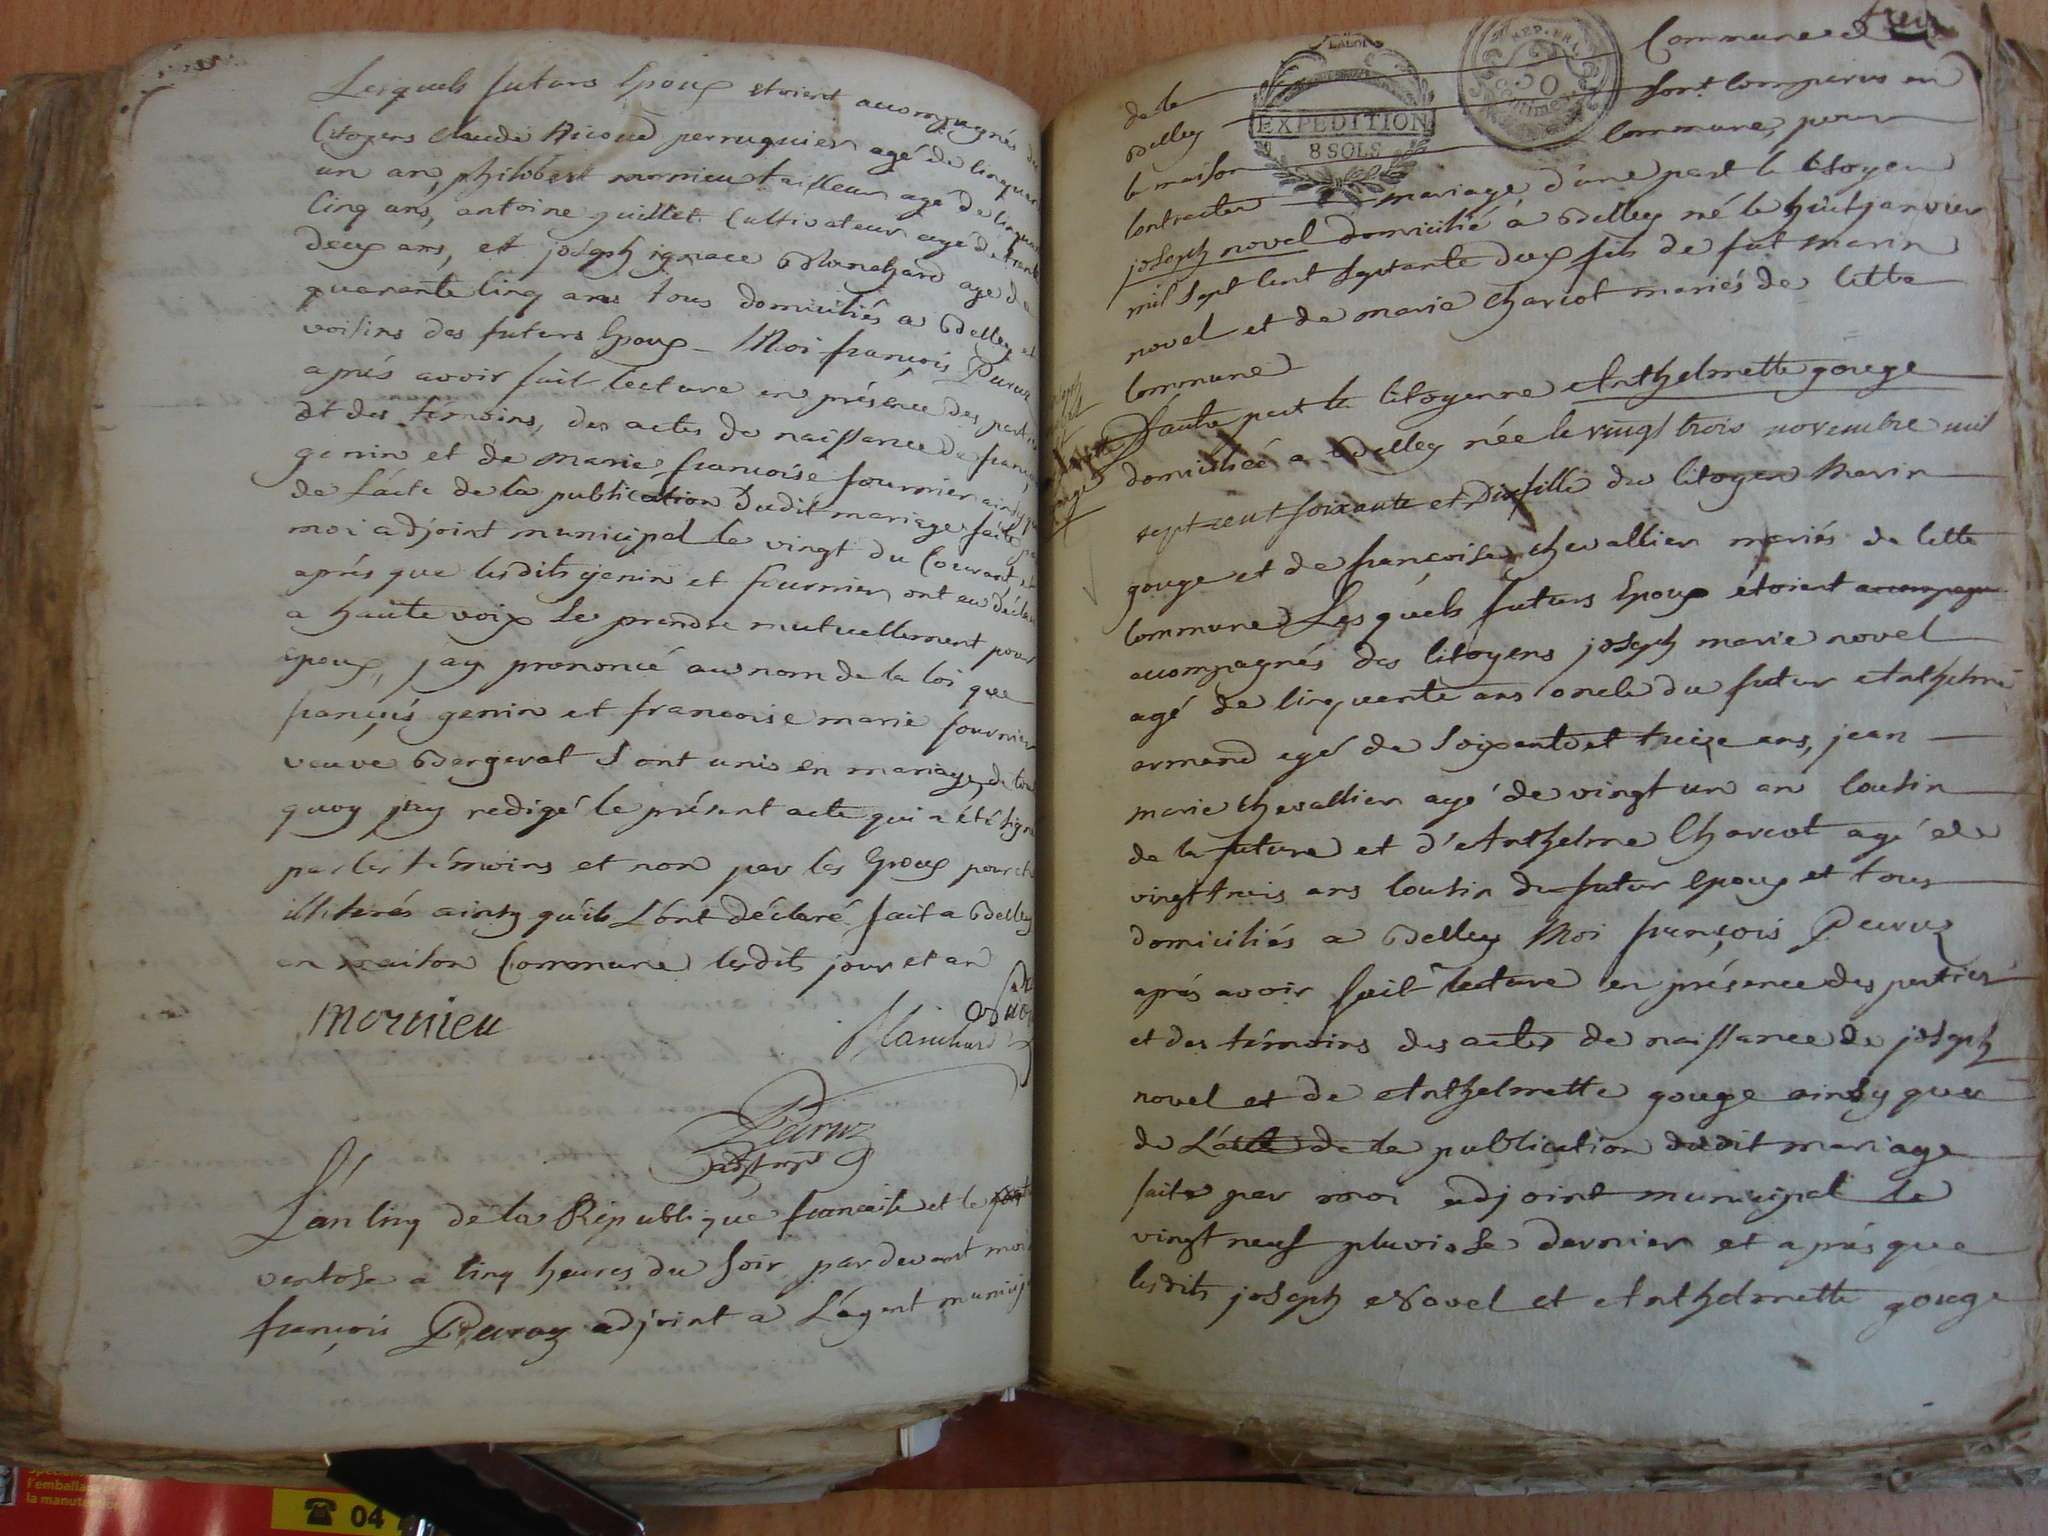 Lesquels futurs Epoux etoient accompagnés de
Citoyens Claude Ricoud perruquier agé de Cinquan
un an, philibert mornieu tailleur agé de Cinquan
Cinq ans, antoine guillet Cultivateur agé de trente
deux ans, et joseph ignace Blanchard age de
quarante Cinq ans tous domiciliés a Belley et
voisins des futurs Epoux - Moi françois Peruz
aprés avoir fait lecture en présence des parties
et des temoins, des actes de naissance de françois
genin et de marie françoise fournier ainsy que
de L'acte de la publication Dudit mariage faite par
moi adjoint municipal le vingt du Courant, et
aprés que lesdits genin et fournier ont eu déclaré
a haute voix Se prendre mutuellement pour
epoux, j'ay prononcé au nom de la loi que
françois genin et francoise marie fournier
veuve Bergerat Sont unis en mariage, de tout
quoy j'ay redigé le présent acte qui a été signé
par les témoins et non par les Epoux pour etre
illiterés ainsy qu'ils L'ont déclaré fait a Belley
en maison Commune lesdits jour et an
mornieu
Blanchard
Peruz
adjoint
L'an Cinq de la République francaise et le
ventose a Cinq heures du Soir par devant moi
françois Peruz adjoint a L'agent municip
de la Commune de
Belley sont Comparus en
la maison Commune, pour
Contracter mariage, d'une part le Citoyen
joseph novel domicilié a Belley né le huit janvier
mil Sept Cent Septante deux fils de fut Marin
novel et de marie Charcot mariés de Cette
Commune
D'autre part la Citoyenne Anthelmette gouge
domiciliée a Belley née le vingt trois novembre mil
sept cent soixante et Dix fille du Citoyen Marin
gouge et de françoise chevallier mariés de Cette
Commune Lesquels futurs Epoux étoient accompagn
accompagnés des Citoyens joseph marie novel
agé de Cinquante ans oncle du futur Anthelme
armand agé de Soixante et treize ans, jean
marie chevallier agé de vingt un an Cousin
de la future et d'Anthelme Charcot agé de
vingt trois ans Cousin du futur Epoux et tous
domiciliés a Belley Moi françois Peruz
aprés avoir fait lecture en présence des parties
et des témoins des actes de naissance de joseph
novel et de Anthelmette gouge ainsy que
de L'acte de la publication dudit mariage
faite par moi adjoint municipal le
vingt neuf pluviose dernier et aprés que
lesdits joseph Novel et Anthelmette gouge
EXPEDITION
8 SOLS
REP. FRA.
50
Centimes
l'emballa
la manuten
☎ 04